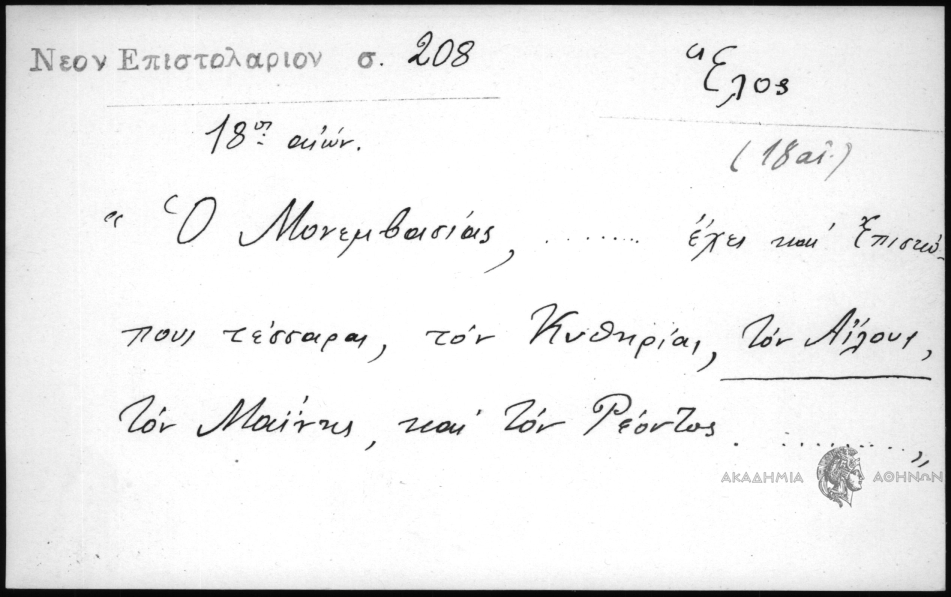 Νεον Επιστολαριον σ. 208
Ἕλος
18ος αἰών.
(18 αἰ.)
" Ὁ Μονεμβασίας, ........ ἔχει καί Ἐπισκό-
πους τέσσαρας, τόν Κυθηρίας, τόν Αἵλους,
τόν Μαΐνης, καί τόν Ρέοντος. .......... "
ΑΚΑΔΗΜΙΑ ΑΘΗΝΩΝ